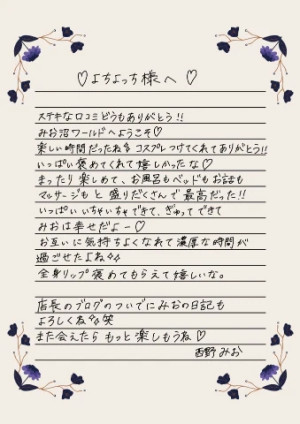 ♡よちよっち様へ♡
ステキな口コミどうもありがとう!!
みお沼ワールドへようこそ♡
楽しい時間だったね コスプレつけてくれてありがとう!!
いっぱい褒めてくれて嬉しかったな♡
まったり楽しめて、お風呂もベッドもお話も
マッサージもと盛りだくさんで最高だった!!
いっぱいいちゃいちゃできて、ぎゅってできて
みおは幸せだよー♡
お互いに気持ちよくなれて濃厚な時間が
過ごせたよね
全身リップ褒めてもらえて嬉しいな。
店長のブログのついでにみおの日記も
よろしくね 笑
また会えたらもっと楽しもうね♡
西野みお